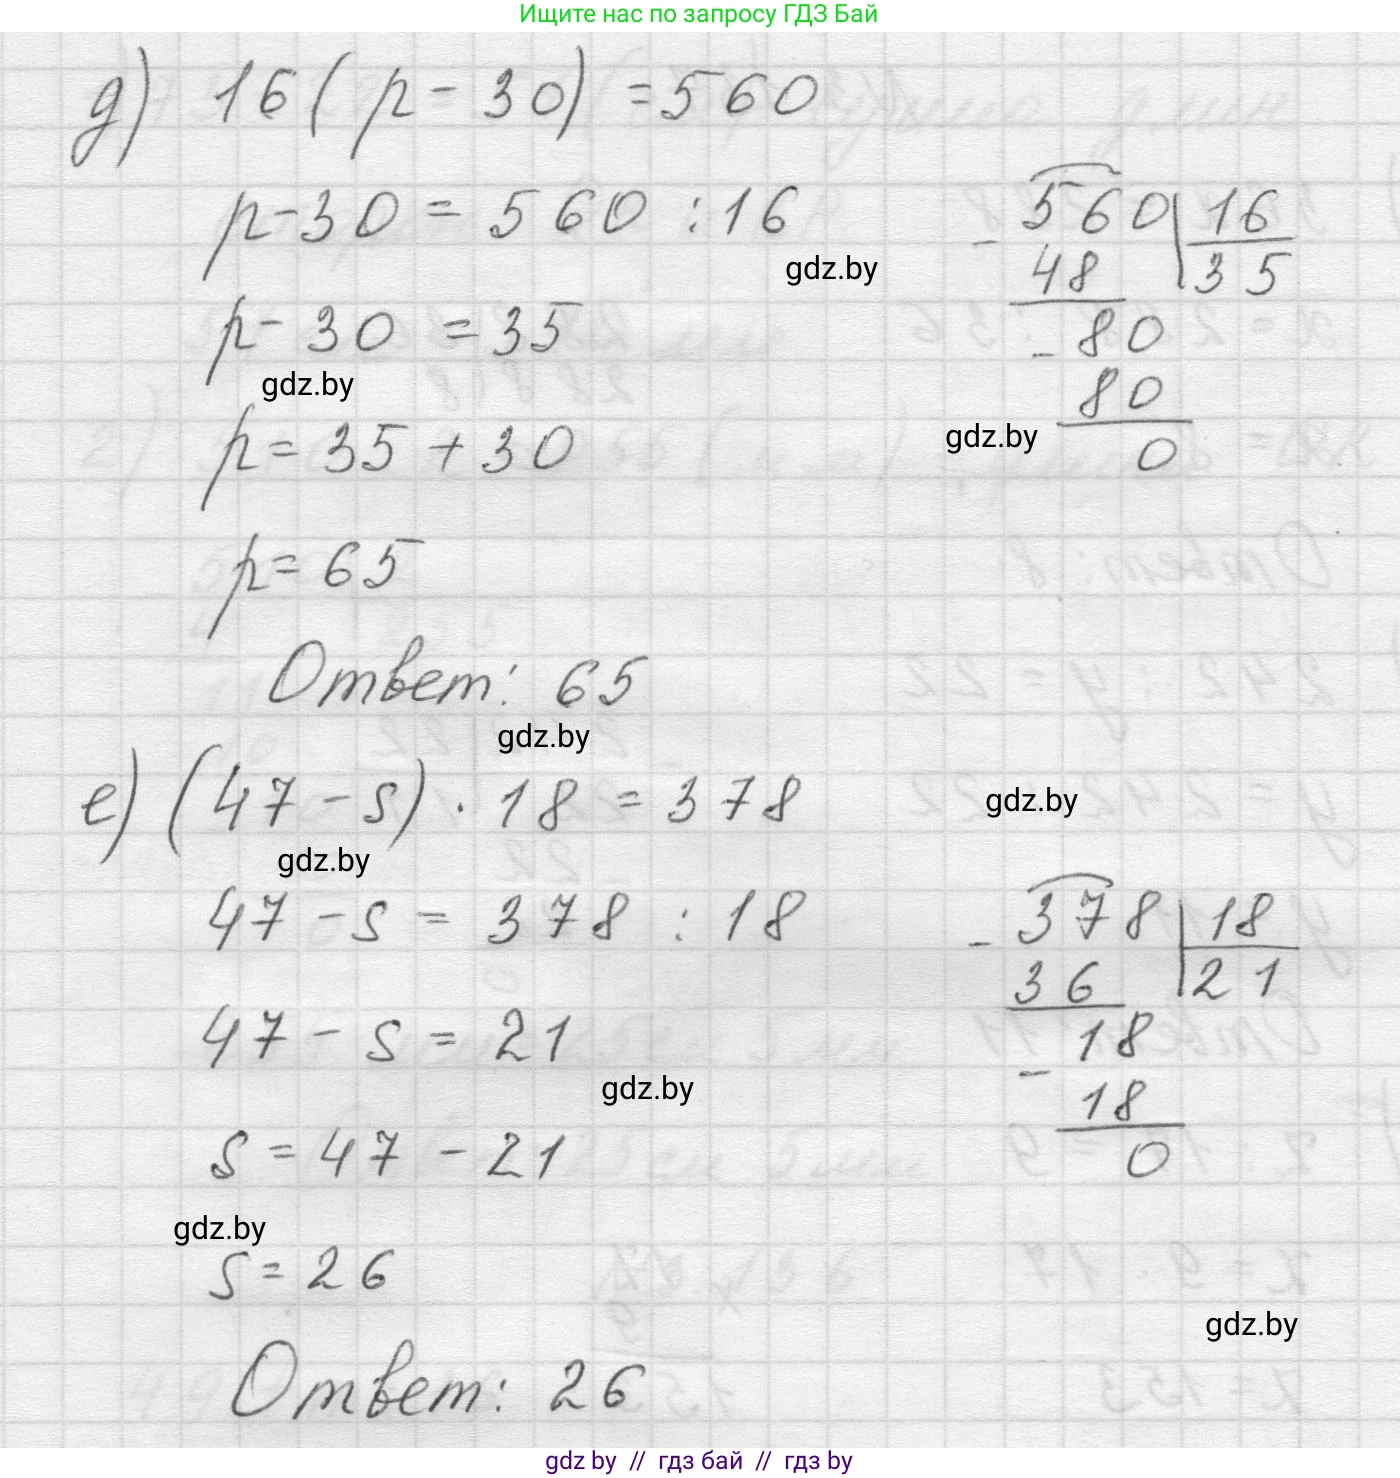 Ищите нас по запросу ГДЗ Бай
д) 16(p - 30) = 560
p - 30 = 560 : 16
gdz.by
p - 30 = 35
gdz.by
p = 35 + 30
p = 65
Ответ: 65
gdz.by
560 | 16
- 48 | 35
80
- 80
gdz.by
0
е) (47 - s) · 18 = 378
gdz.by
gdz.by
47 - s = 378 : 18
47 - s = 21
gdz.by
s = 47 - 21
gdz.by
s = 26
Ответ: 26
- 378 | 18
36 | 21
- 18
18
0
gdz.by
gdz by // гдз бай // гдз by